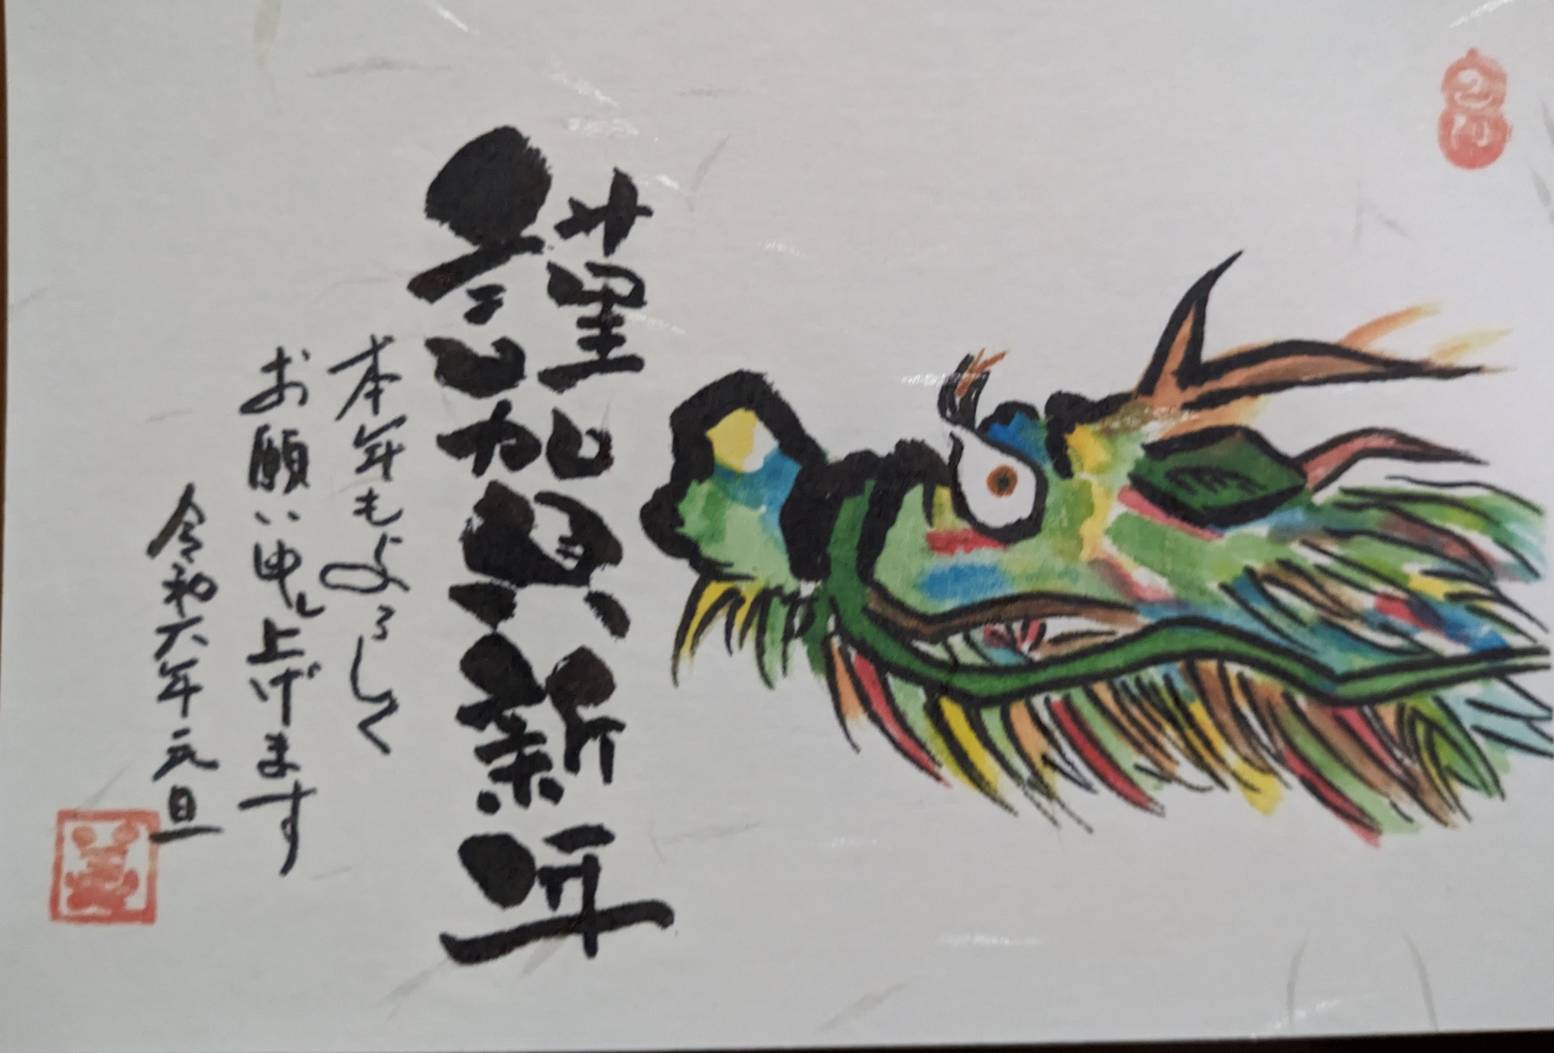 謹賀新年
本年もよろしく
お願い申し上げます
令和六年元旦